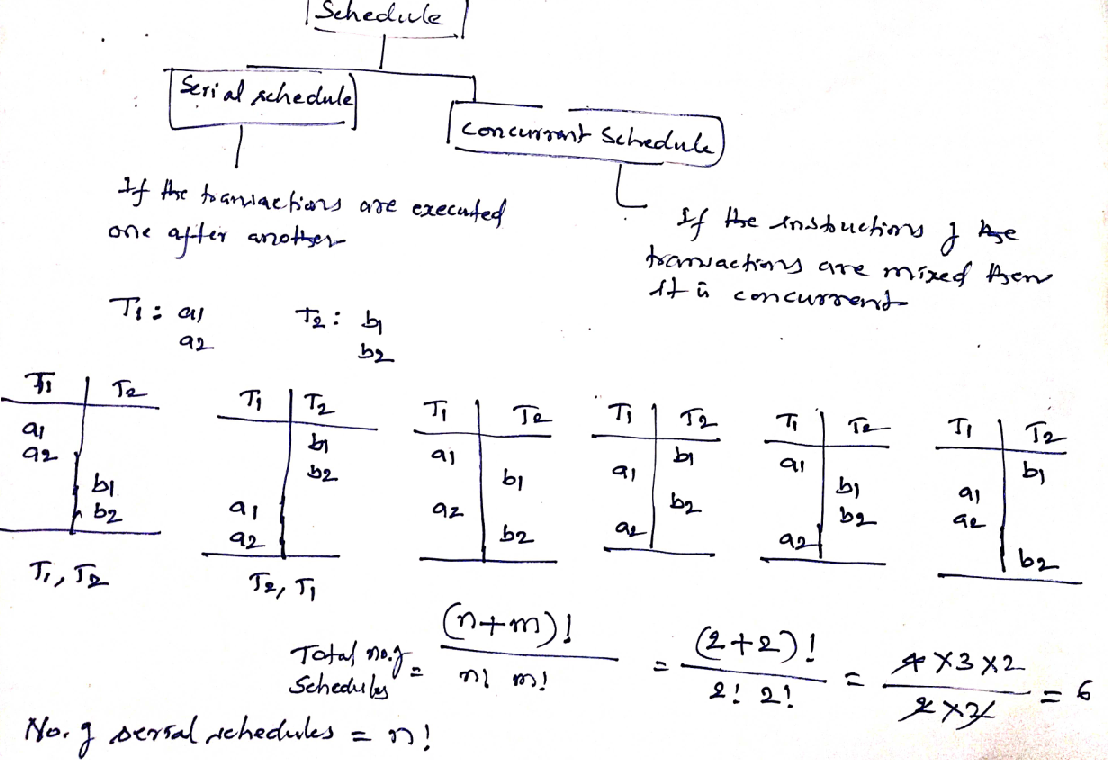 Schedule
Serial schedule
Concurrent Schedule
If the transactions are executed
one after another
If the instructions of the
transactions are mixed then
it is concurrent
T1 : a1 T2 : b1
a2 b2
T1 T2
a1
a2
b1
b2
T1, T2
T1 T2
b1
b2
a1
a2
T2, T1
T1 T2
a1
b1
a2
b2
T1 T2
b1
a1
b2
a2
T1 T2
a1
b1
b2
a2
T1 T2
b1
a1
a2
b2
Total no. of Schedules = (n+m)! / n! m! = (2+2)! / 2! 2! = 4×3×2 / 2×2 = 6
No. of serial schedules = n!